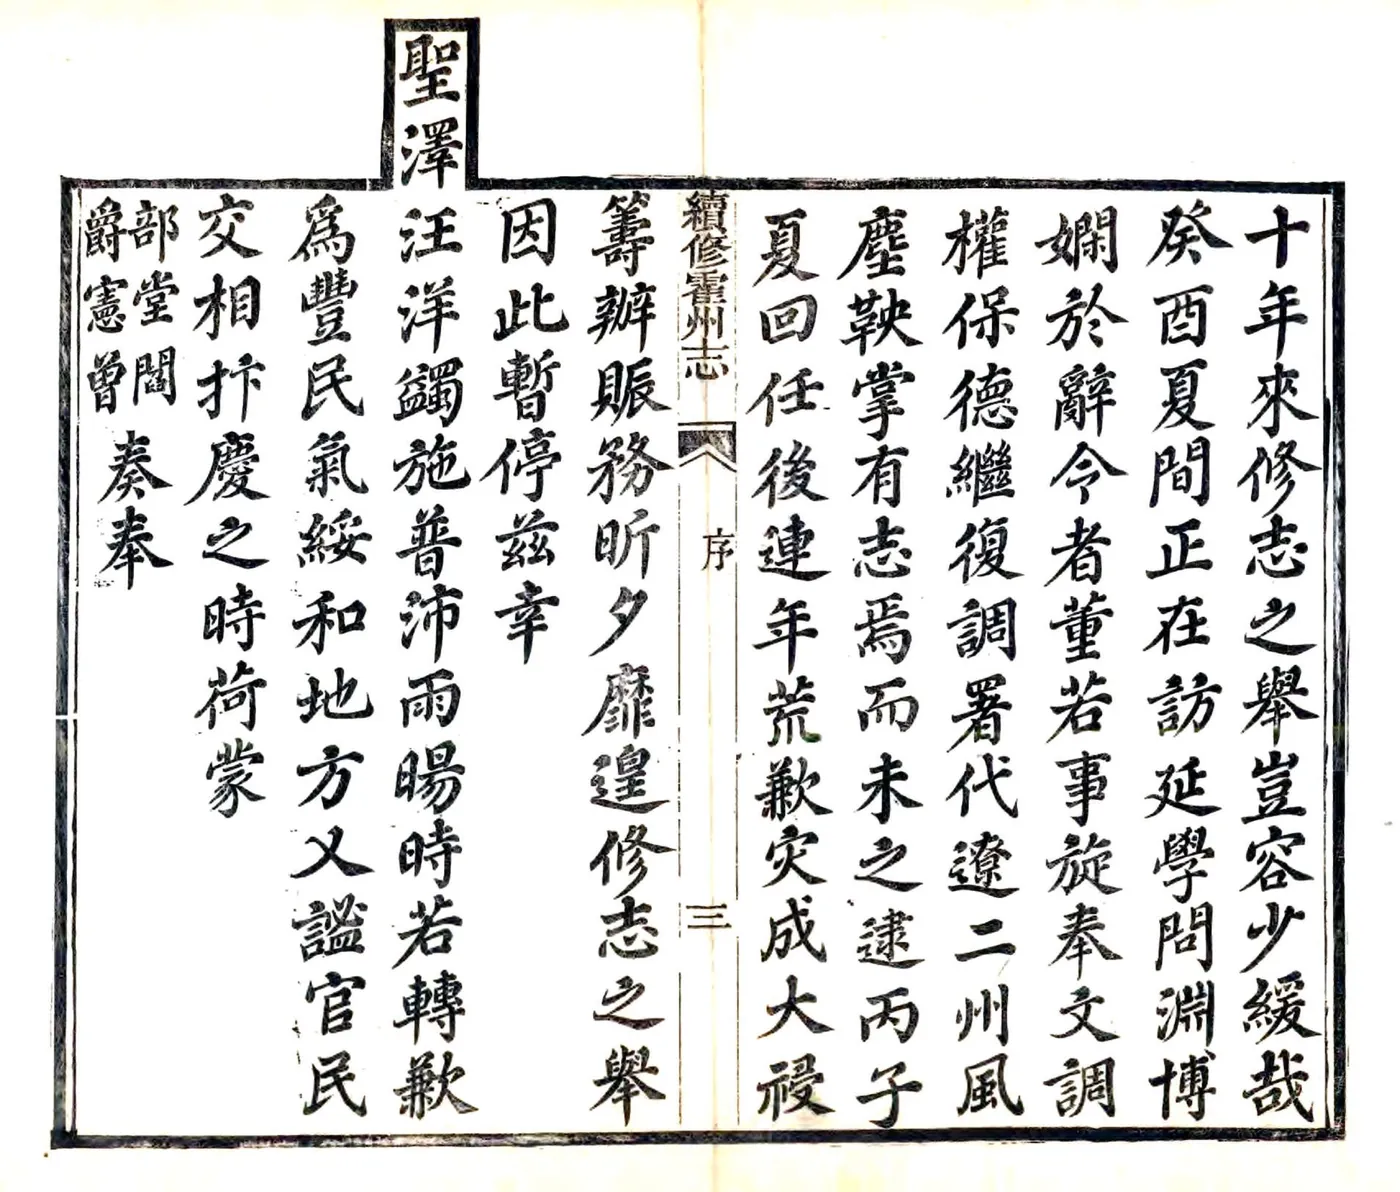 十年來修志之舉豈容少緩哉
癸酉夏間正在訪延學問淵博
嫻於辭令者董若事旋奉文調
權保德繼復調署代遼二州風
塵鞅掌有志焉而未之逮丙子
夏回任後連年荒歉灾成大祲
續修霍州志
序
三
籌辦賑務昕夕靡遑修志之舉
因此暫停茲幸
聖澤汪洋蠲施普沛雨暘時若轉歉
爲豐民氣綏和地方乂謐官民
交相抃慶之時荷蒙
部堂閻
爵憲曾
奏奉